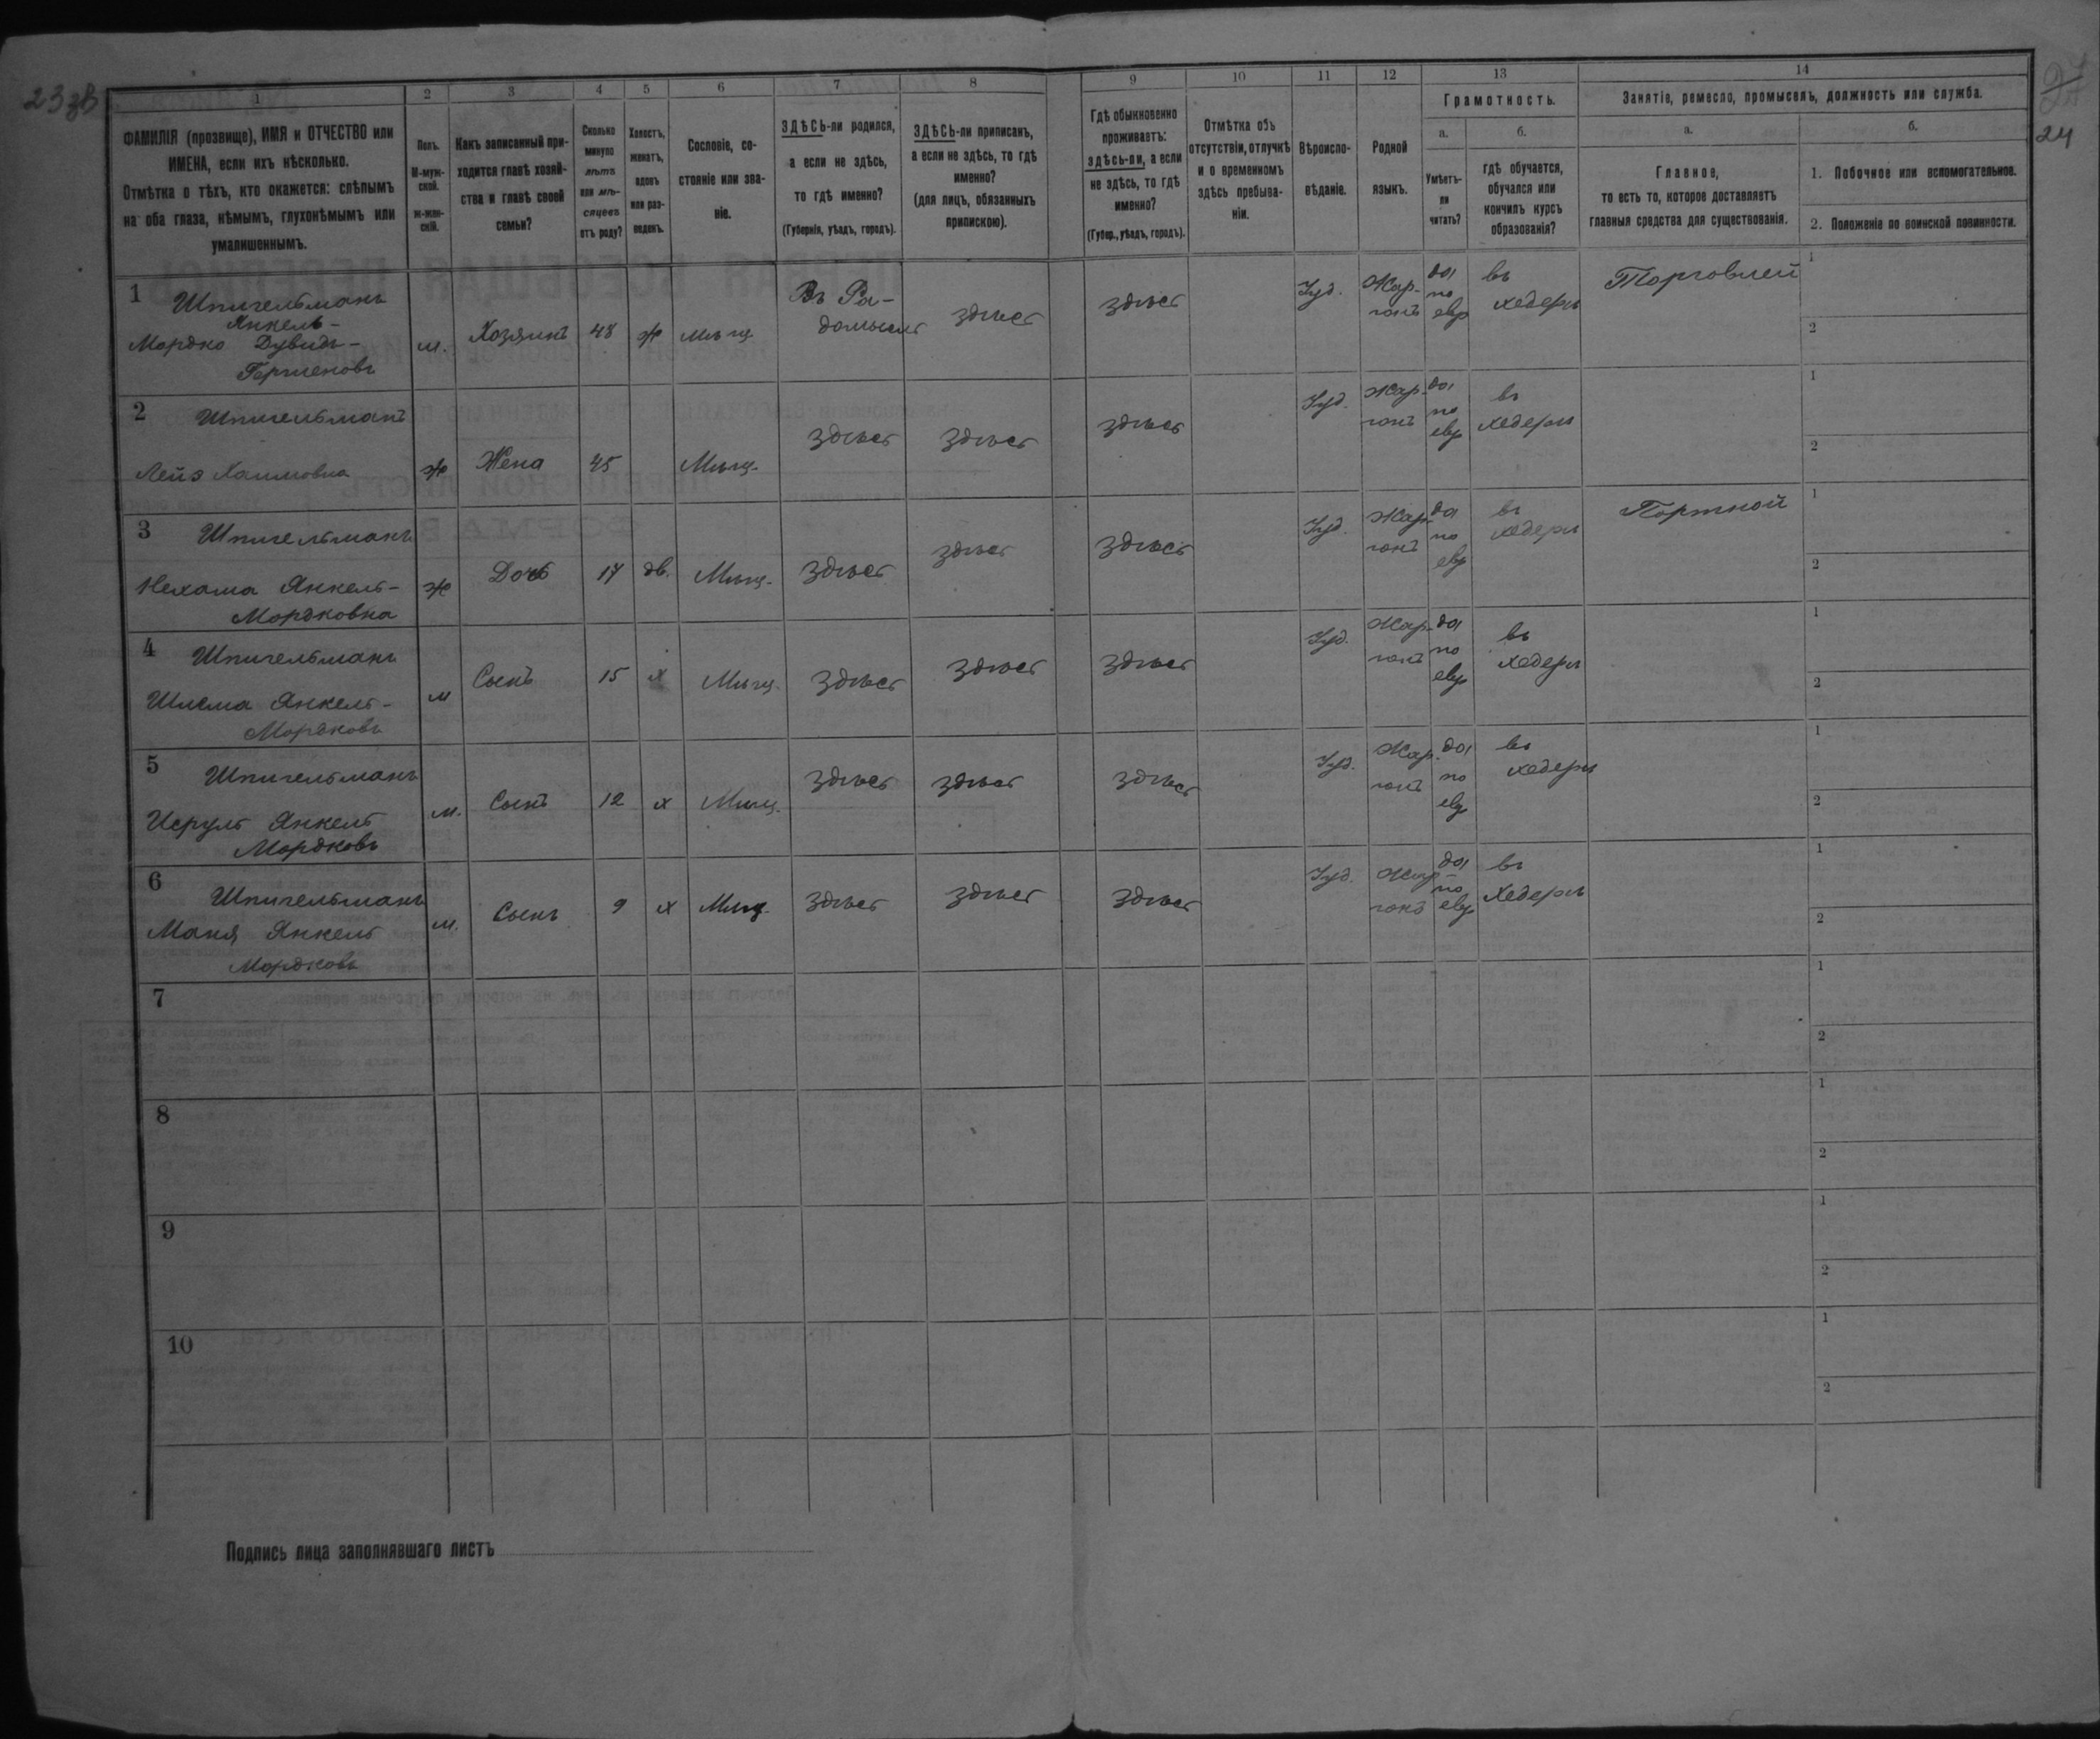 23 зв
24
1
2
3
4
5
6
7
8
9
10
11
12
13
14
ФАМИЛІЯ (прозвище), ИМЯ и ОТЧЕСТВО или
ИМЕНА, если ихъ нѣсколько.
Отмѣтка о тѣхъ, кто окажется: слѣпымъ
на оба глаза, нѣмымъ, глухонѣмымъ или
умалишеннымъ.
Полъ.
М-муж-
ской.
ж-жен-
скій.
Какъ записанный при-
ходится главѣ хозяй-
ства и главѣ своей
семьи?
Сколько
минуло
лѣтъ
или мѣ-
сяцевъ
отъ роду?
Холостъ,
женатъ,
вдовъ
или раз-
веденъ.
Сословіе, со-
стояніе или зва-
ніе.
ЗДѢСЬ-ли родился,
а если не здѣсь,
то гдѣ именно?
(Губернія, уѣздъ, городъ).
ЗДѢСЬ-ли приписанъ,
а если не здѣсь, то гдѣ
именно?
(для лицъ, обязанныхъ
припискою).
Гдѣ обыкновенно
проживаетъ:
здѣсь-ли, а если
не здѣсь, то гдѣ
именно?
(Губер., уѣздъ, городъ).
Отмѣтка объ
отсутствіи, отлучкѣ
и о временномъ
здѣсь пребыва-
ніи.
Вѣроиспо-
вѣданіе.
Родной
языкъ.
Грамотность.
а.
Умѣетъ-
ли
читать?
б.
гдѣ обучается,
обучался или
кончилъ курсъ
образованія?
Занятіе, ремесло, промыселъ, должность или служба.
а.
Главное,
то есть то, которое доставляетъ
главныя средства для существованія.
б.
1. Побочное или вспомогательное.
2. Положеніе по воинской повинности.
1
Шпигельманъ
Янкель-
Мордко Дувидъ-
Гершеновъ
м.
Хозяинъ
48
ж
мѣщ
Въ Ра-
домыслѣ
здѣсь
здѣсь
Іуд.
Жар-
гонъ
да
по
евр
въ
хедерѣ
Торговлей
1
2
2
Шпигельманъ
Лейз Хаимовна
ж
Жена
45
Мѣщ.
здѣсь
здѣсь
здѣсь
Іуд.
Жар-
гонъ
да
по
евр
въ
хедерѣ
1
2
3
Шпигельманъ
Нехама Янкель-
Мордковна
ж
Дочь
17
дв.
Мѣщ.
здѣсь
здѣсь
здѣсь
Іуд.
Жар-
гонъ
да
по
евр
въ
хедерѣ
Портной
1
2
4
Шпигельманъ
Шлема Янкель-
Мордковъ
м
Сынъ
15
х
Мѣщ.
здѣсь
здѣсь
здѣсь
Іуд.
Жар-
гонъ
да
по
евр
въ
хедерѣ
1
2
5
Шпигельманъ
Исруль Янкель
Мордковъ
м.
Сынъ
12
х
Мѣщ.
здѣсь
здѣсь
здѣсь
Іуд.
Жар-
гонъ
да
по
евр
въ
хедерѣ
1
2
6
Шпигельманъ
Маня Янкель
Мордковъ
м.
Сынъ
9
х
Мѣщ.
здѣсь
здѣсь
здѣсь
Іуд.
Жар-
гонъ
да
по
евр
въ
Хедерѣ
1
2
7
1
2
8
1
2
9
1
2
10
1
2
Подпись лица заполнявшаго листъ